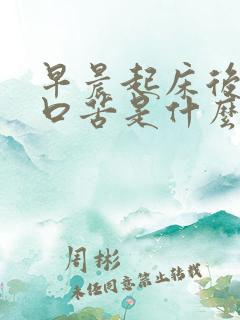 早晨起床後
口苦是什麼
周彬
未经同意禁止转载